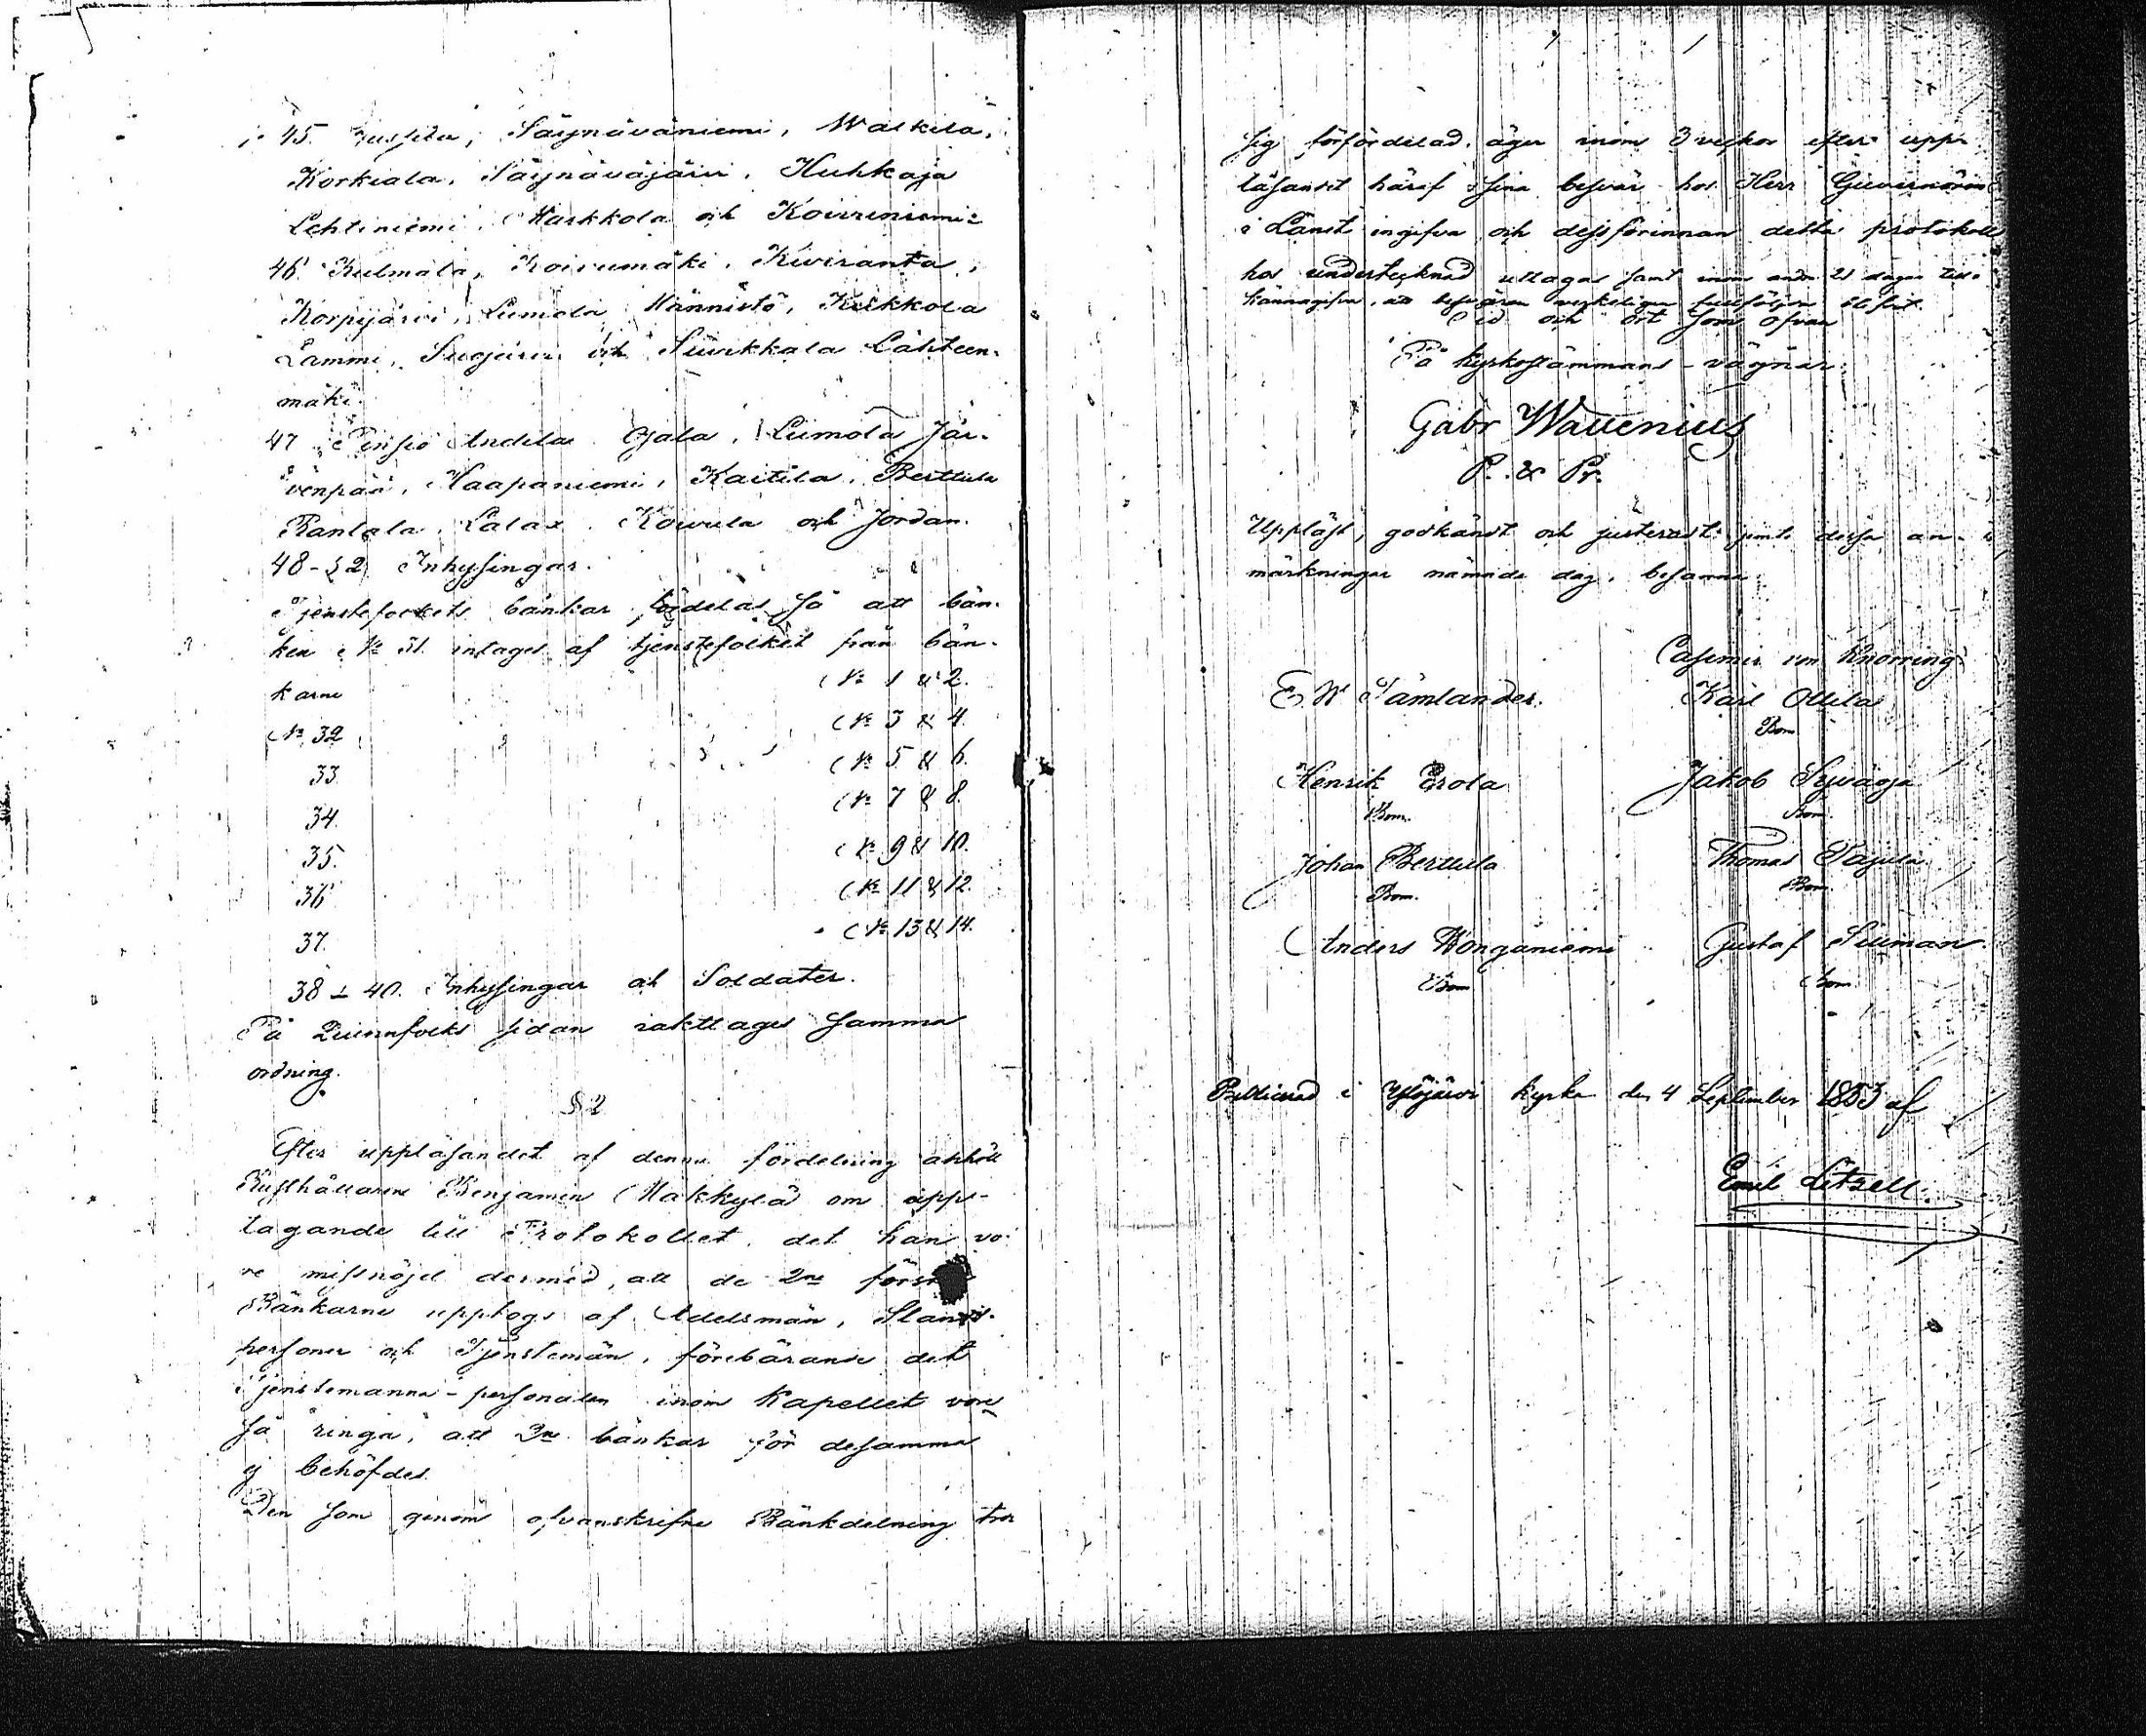 45. Jussila, Säynäväniemi, Walkila,
Korkiala, Säynäväjärvi, Kuhkaja
Lehtiniemi, Markkola och Koivuniemi
46. Kulmala, Koivumäki, Kiviranta,
Korpijärvi, Liimola, Männistö, Keikkola
Lammi, Suojärvi och Siivikkala Lähteen-
mäki.
47. Pensiö Andila Ojala, Liimola Jär-
venpää, Haapaniemi, Kaitila, Berttula
Rantala, Lalax, Kowula och Jordan.
48-52 Inhysingar.
Tjenstefolkets bänkar fördelas så att bän-
ken № 31. intages af tjenstefolket från bän-
karne № 1 & 2.
№ 32 № 3 & 4.
33. № 5 & 6.
34. № 7 & 8.
35. № 9 & 10.
36 № 11 & 12.
37. № 13 & 14.
38 à 40. Inhysingar och Soldater.
På Quinnfolks sidan iakttages samma
ordning.
§ 2
Efter uppläsandet af denna fördelning anhöll
Rusthållaren Benjamin Mäkkylä om upp-
tagande till Protokollet, det han vo-
re missnöjd dermed, att de 2ne första
Bänkarne upptogs af Adelsmän, Stånds-
personer och Tjenstemän, förebärande det
Tjenstemanna-personalen inom Kapellet vore
så ringa, att 2ne bänkar för desamma
ej behöfdes.
Den som genom ofvanskrifne Bänkdelning tror
sig förfördelad, äger inom 3 veckor efter upp-
läsandet häraf sina besvär hos Herr Guvernören
i Länet ingifva och dessförinnan detta protokoll
hos undertecknad uttaga samt inom andra 21 dagar till-
kännagifva, att besvären verkeligen fullföljda blifvit.
Tid och ort som ofvan
På kyrkostämmans-vägnar
Gabr Wallenius
P. & Pr.
Uppläst, godkändt och justeradt jemte dessa an-
märkningar nämnde dag, besanna
Casimir von Knorring
E. W. Tämlander. Karl Ollila
Bom
Henrik Erola Jakob Syväoja
Bom. Bom.
Johan Berttula Thomas Pajula
Bom. Bom.
Anders Wonganiemi Gustaf Siiman
Bom Bom.
Publicerad i Ylöjärvi kyrka den 4 September 1853 af
Emil Litzell.